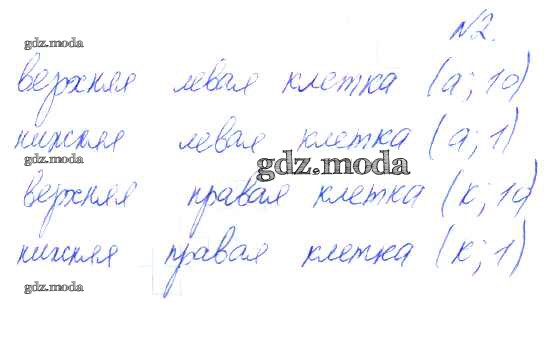 №2.
gdz.moda
верхняя левая клетка (а; 10)
нижняя левая клетка (а; 1)
gdz.moda
gdz.moda
верхняя правая клетка (к; 10)
нижняя правая клетка (к; 1)
gdz.moda